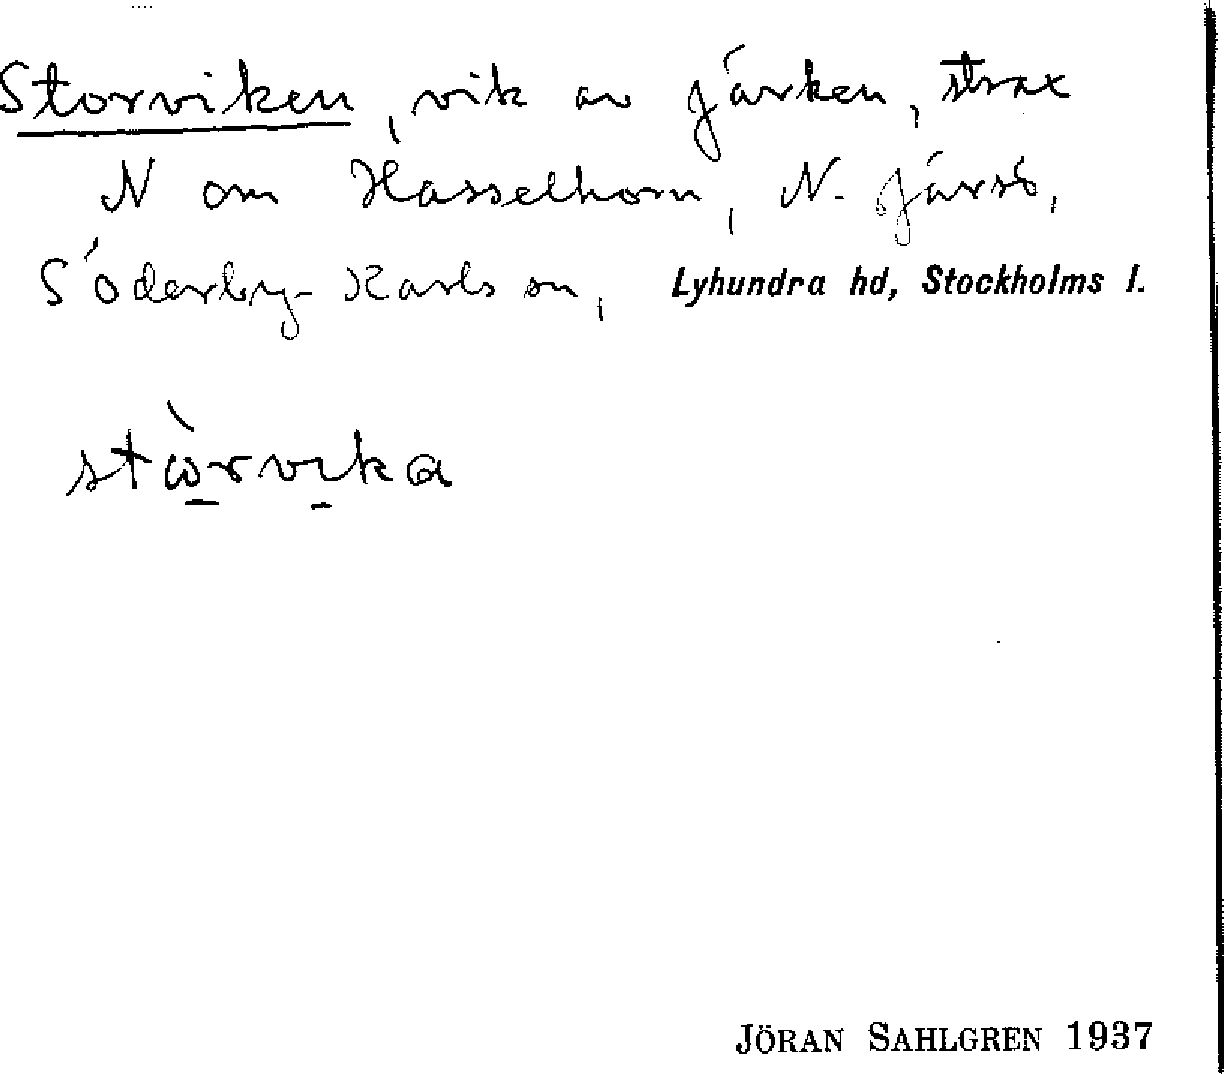 Storviken, vik av Järken, strax
N om Hasselhorn, N. Järsö,
Söderby-Karls sn, Lyhundra hd, Stockholms l.
stὼ̱rvi̱ka
JÖRAN SAHLGREN 1937